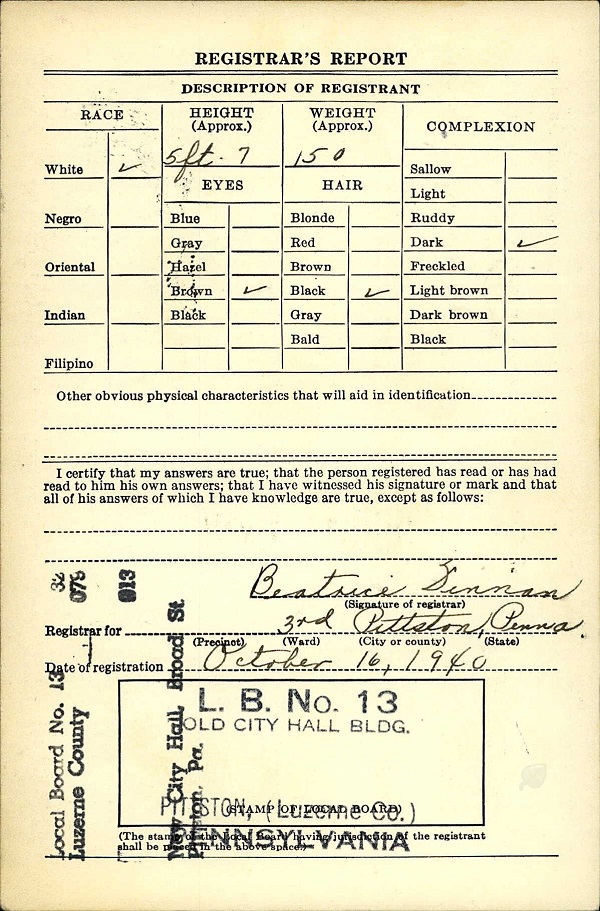 REGISTRAR'S REPORT
DESCRIPTION OF REGISTRANT
RACE
HEIGHT (Approx.)
WEIGHT (Approx.)
COMPLEXION
5 ft. 7
150
White ✓
EYES
HAIR
Sallow
Light
Negro
Blue
Blonde
Ruddy
Gray
Red
Dark ✓
Oriental
Hazel
Brown
Freckled
Brown ✓
Black ✓
Light brown
Indian
Black
Gray
Dark brown
Bald
Black
Filipino
Other obvious physical characteristics that will aid in identification
I certify that my answers are true; that the person registered has read or has had
read to him his own answers; that I have witnessed his signature or mark and that
all of his answers of which I have knowledge are true, except as follows:
32
079
013
Beatrice
(Signature of registrar)
Registrar for 3rd Pittston, Penna.
(Precinct) (Ward) (City or county) (State)
Date of registration October 16, 1940
Local Board No. 13
Luzerne County
New City Hall, Broad St.
Pittston, Pa.
L. B. No. 13
OLD CITY HALL BLDG.
PITTSTON, (Luzerne Co.)
(STAMP OF LOCAL BOARD)
PENNSYLVANIA
(The stamp of the Local Board having jurisdiction of the registrant
shall be placed in the above space.)